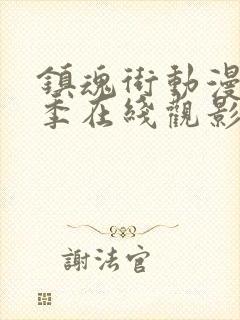 鎮魂街動漫
季在綫觀影
謝法官